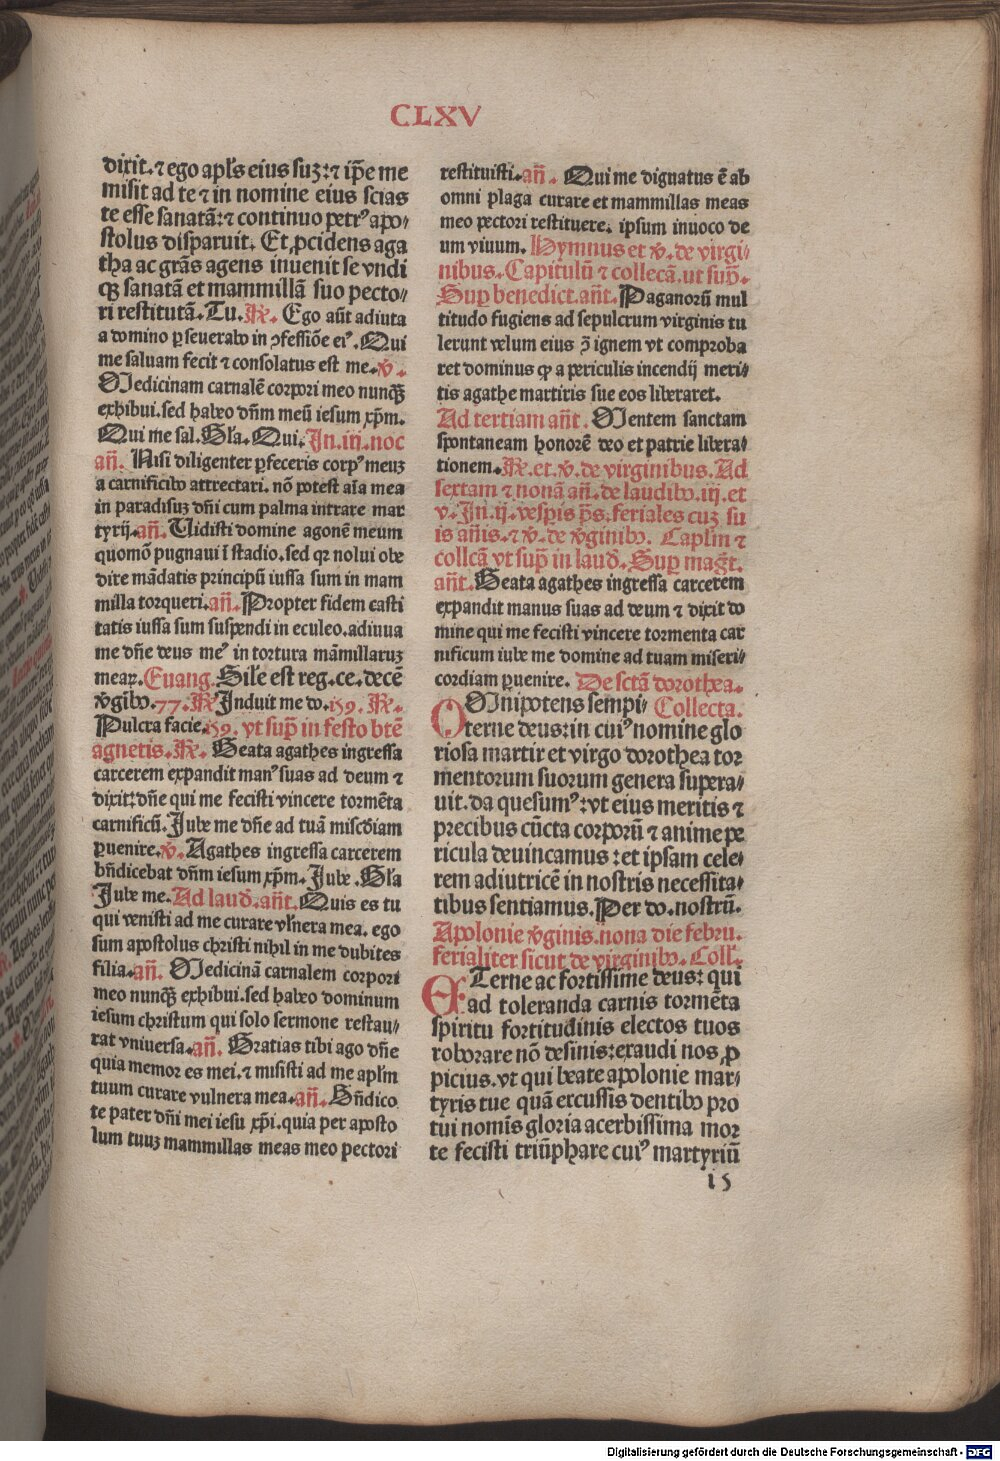 CLXV
dixit.⁊ ego apl's eius suꝫ:⁊ ip̃e me
misit ad te ⁊ in nomine eius scias
te esse sanatã:⁊ continuo petrꝰ apo⸗
stolus disparuit. Et ꝓcidens aga
tha ac grãs agens inuenit se vndi
qꝫ sanatã et mammillã suo pecto⸗
ri restitutã. Tu. ℟. Ego aũt adiuta
a domino ꝑseuerabo in ꝯfessiõe eiꝰ. Qui
me saluam fecit ⁊ consolatus est me. ℣.
Medicinam carnalẽ corpori meo nunqꝫ
exhibui. sed habeo dñm meũ iesum xp̃m.
Qui me sal. Gl'a. Qui. Jn. iii. noc
añ. Nisi diligenter ꝑfeceris corpꝰ meuꝫ
a carnificibꝰ attrectari. nõ potest aĩa mea
in paradisuꝫ dñi cum palma intrare mar
tyrij. añ. Uidisti domine agonẽ meum
quomõ pugnaui ĩ stadio. sed qꝛ nolui obe
dire mãdatis principũ iussa sum in mam
milla torqueri. añ. Propter fidem casti
tatis iussa sum suspendi in eculeo. adiuua
me dñe deus meꝰ in tortura mãmillaruꝫ
meaꝝ. Euang. Sil'e est reg. ce. decẽ
v̾gĩbꝰ. 77. ℟ Jnduit me do. 159. ℟.
Pulcra facie. 159. vt sup̃ in festo btẽ
agnetis. ℟. Beata agathes ingressa
carcerem expandit manꝰ suas ad deum ⁊
dixit: dñe qui me fecisti vincere tormẽta
carnificũ. Jube me dñe ad tuã miscdiam
ꝑuenire. ℣. Agathes ingressa carcerem
bñdicebat dñm iesum xp̃m. Jube. Gl'a
Jube me. Ad laud̾. añt. Quis es tu
qui venisti ad me curare vl'nera mea. ego
sum apostolus christi nihil in me dubites
filia. añ. Medicinã carnalem corpori
meo nunqꝫ exhibui. sed habeo dominum
iesum christum qui solo sermone restau⸗
rat vniuersa. añ. Gratias tibi ago dñe
quia memor es mei. ⁊ misisti ad me apl'm
tuum curare vulnera mea. añ. Bñdico
te pater dñi mei iesu xp̃i. quia per aposto
lum tuuꝫ mammillas meas meo pectori
restituisti. añ. Qui me dignatus ẽ ab
omni plaga curare et mammillas meas
meo pectori restituere. ipsum inuoco de
um viuum. Hymnus et ℣. de virgi⸗
nibus. Capitulũ ⁊ collecã. ut sup̃.
Suꝑ benedict. añt. Paganorũ mul
titudo fugiens ad sepulcrum virginis tu
lerunt velum eius ꝯ̃ ignem vt comproba
ret dominus ꝙ a periculis incendij meri⸗
tis agathe martiris sue eos liberaret.
Ad tertiam añt. Mentem sanctam
spontaneam honorẽ deo et patrie libera⸗
tionem. ℟. et. ℣. de virginibus. Ad
sextam ⁊ nonã añ. de laudibꝰ. iij. et
v. Jn. ij. vesp̃is p̃s. feriales cuꝫ su
is añis. ⁊ ℣. de v̾ginibꝰ. Capl'm ⁊
collcã vt sup̃ in laud̾. Suꝑ mag̃t.
añt. Beata agathes ingressa carcerem
expandit manus suas ad deum ⁊ dixit do
mine qui me fecisti vincere tormenta car
nificum iube me domine ad tuam miseri⸗
cordiam ꝑuenire. De sctã dorothea.
OMnipotens sempi⸗ Collecta.
terne deus: in cuiꝰ nomine glo
riosa martir et virgo dorothea tor
mentorum suorum genera supera⸗
uit. da quesumꝰ: vt eius meritis ⁊
precibus cũcta corporũ ⁊ anime pe
ricula deuincamus: et ipsam cele⸗
rem adiutricẽ in nostris necessita⸗
tibus sentiamus. Per do. nostrũ.
Apolonie v̾ginis. nona die febru.
ferialiter sicut de virginibꝰ. Coll'.
ETerne ac fortissime deus: qui
ad toleranda carnis tormẽta
spiritu fortitudinis electos tuos
roborare nõ desinis: exaudi nos ꝓ
picius. vt qui beate apolonie mar⸗
tyris tue quã excussis dentibꝰ pro
tui nomĩs gloria acerbissima mor
te fecisti triũphare cuiꝰ martyriũ
15
Digitalisierung gefördert durch die Deutsche Forschungsgemeinschaft - DFG